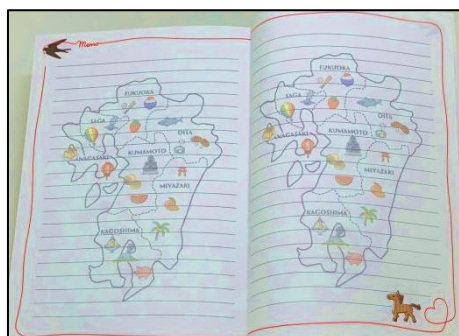 Memo
FUKUOKA
SAGA
OITA
NAGASAKI
KUMAMOTO
MIYAZAKI
KAGOSHIMA
FUKUOKA
SAGA
OITA
NAGASAKI
KUMAMOTO
MIYAZAKI
KAGOSHIMA